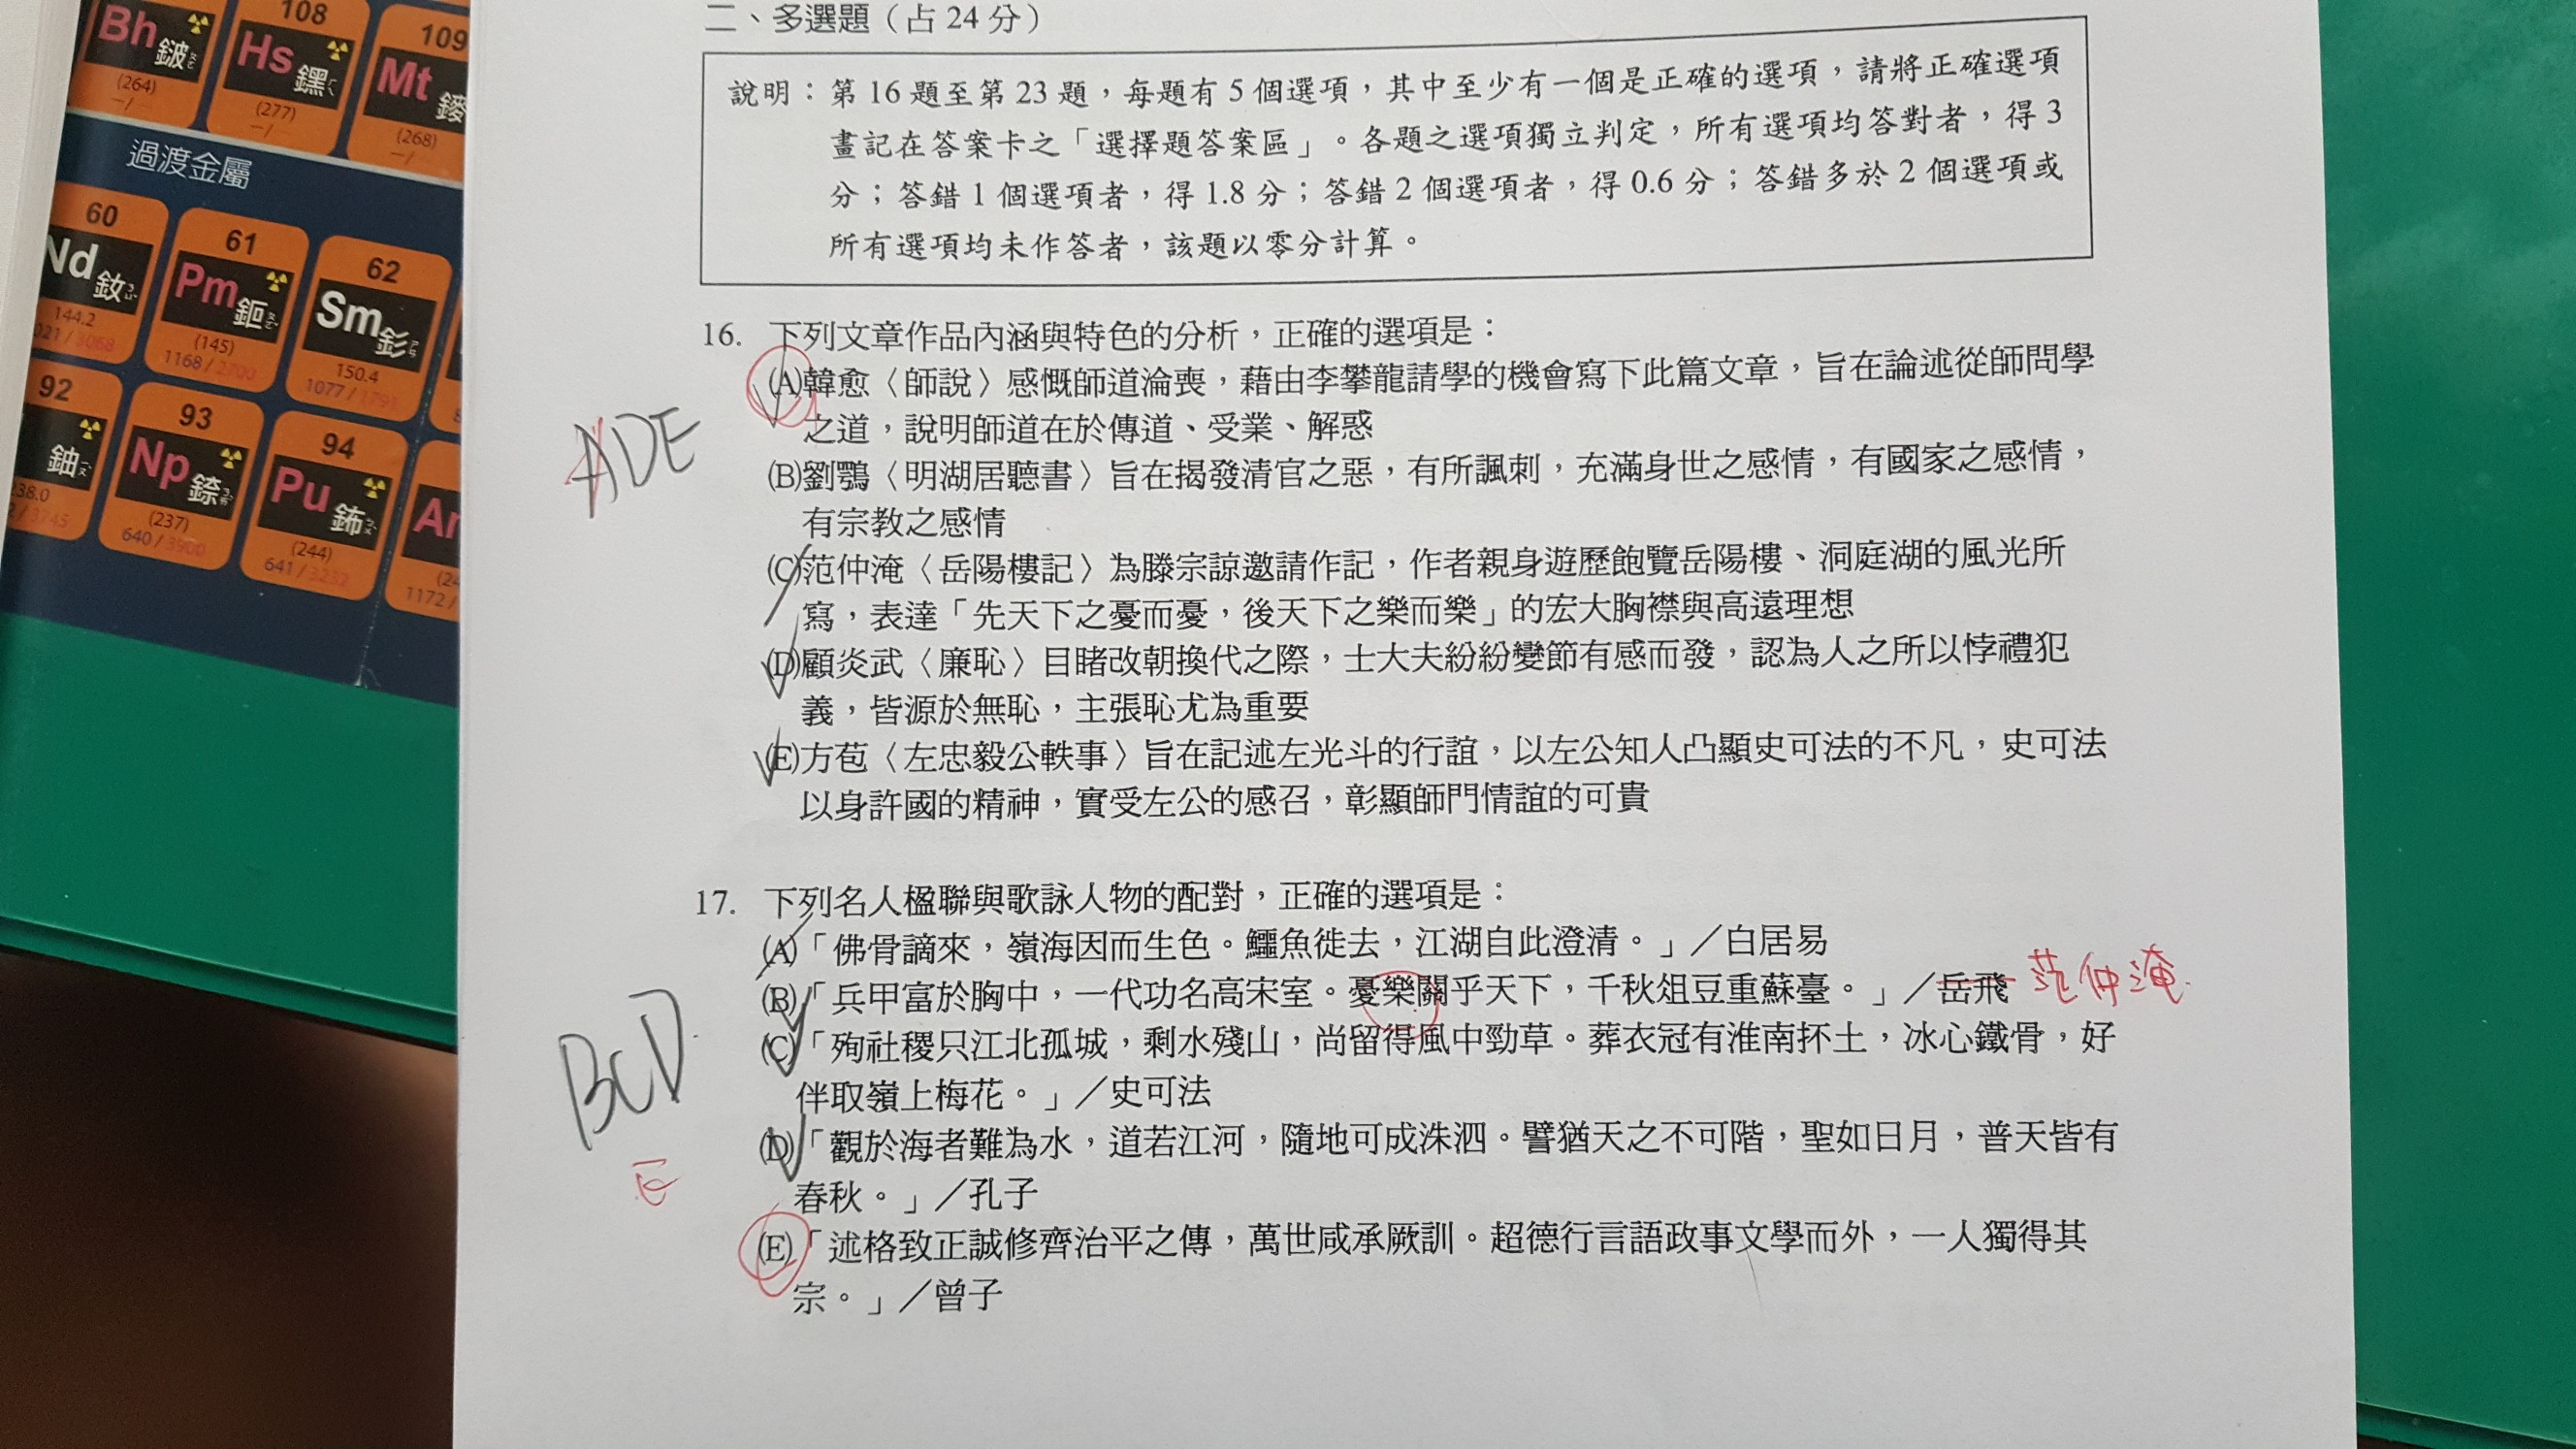 108
109
Bh
鈹
Hs
鏍
Mt
(264)
(277)
(268)
過渡金屬
60
61
62
Nd
釹
Pm
鉕
Sm
釤
144.2
(145)
150.4
1168 / 2700
1077 / 1791
92
93
94
鈾
Np
錼
Pu
鈽
238.0
(237)
(244)
640 / 3900
641 / 3232
1172 /
二、多選題（占 24 分）
說明：第 16 題至第 23 題，每題有 5 個選項，其中至少有一個是正確的選項，請將正確選項
畫記在答案卡之「選擇題答案區」。各題之選項獨立判定，所有選項均答對者，得 3
分；答錯 1 個選項者，得 1.8 分；答錯 2 個選項者，得 0.6 分；答錯多於 2 個選項或
所有選項均未作答者，該題以零分計算。
16. 下列文章作品內涵與特色的分析，正確的選項是：
ADE
(A)韓愈〈師說〉感慨師道淪喪，藉由李攀龍請學的機會寫下此篇文章，旨在論述從師問學
之道，說明師道在於傳道、受業、解惑
(B)劉鶚〈明湖居聽書〉旨在揭發清官之惡，有所諷刺，充滿身世之感情，有國家之感情，
有宗教之感情
(C)范仲淹〈岳陽樓記〉為滕宗諒邀請作記，作者親身遊歷飽覽岳陽樓、洞庭湖的風光所
寫，表達「先天下之憂而憂，後天下之樂而樂」的宏大胸襟與高遠理想
(D)顧炎武〈廉恥〉目睹改朝換代之際，士大夫紛紛變節有感而發，認為人之所以悖禮犯
義，皆源於無恥，主張恥尤為重要
(E)方苞〈左忠毅公軼事〉旨在記述左光斗的行誼，以左公知人凸顯史可法的不凡，史可法
以身許國的精神，實受左公的感召，彰顯師門情誼的可貴
17. 下列名人楹聯與歌詠人物的配對，正確的選項是：
(A)「佛骨謫來，嶺海因而生色。鱷魚徙去，江湖自此澄清。」／白居易
(B)「兵甲富於胸中，一代功名高宋室。憂樂關乎天下，千秋俎豆重蘇臺。」／岳飛 范仲淹
BCD
E
(C)「殉社稷只江北孤城，剩水殘山，尚留得風中勁草。葬衣冠有淮南抔土，冰心鐵骨，好
伴取嶺上梅花。」／史可法
(D)「觀於海者難為水，道若江河，隨地可成洙泗。譬猶天之不可階，聖如日月，普天皆有
春秋。」／孔子
(E)「述格致正誠修齊治平之傳，萬世咸承厥訓。超德行言語政事文學而外，一人獨得其
宗。」／曾子